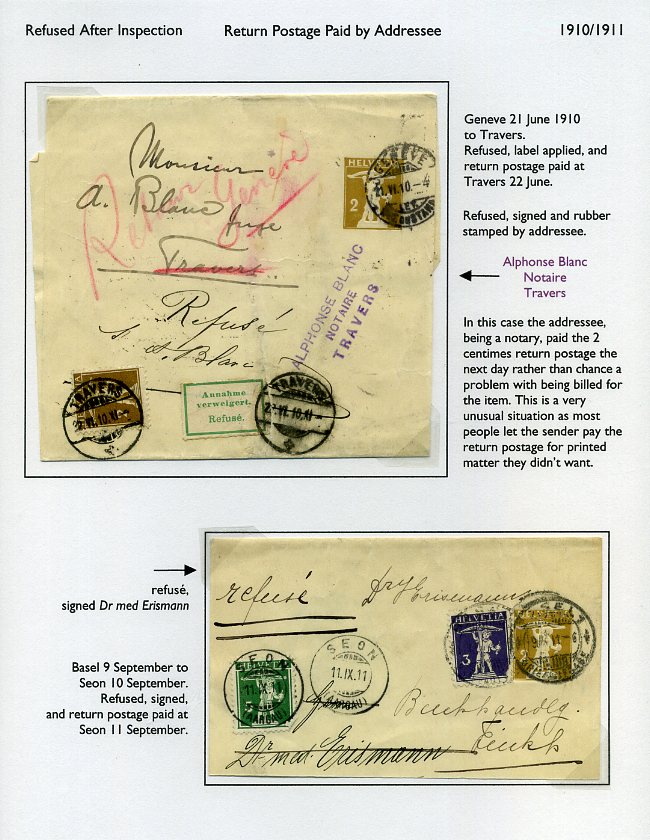 Refused After Inspection
Return Postage Paid by Addressee
1910/1911
Geneve 21 June 1910
to Travers.
Refused, label applied, and
return postage paid at
Travers 22 June.
Refused, signed and rubber
stamped by addressee.
Alphonse Blanc
Notaire
Travers
In this case the addressee,
being a notary, paid the 2
centimes return postage the
next day rather than chance a
problem with being billed for
the item. This is a very
unusual situation as most
people let the sender pay the
return postage for printed
matter they didn't want.
Monsieur
A. Blanc
Travers
Retour Genève
Refusé
A. Blanc
HELVETIA
2
GENÈVE
21.VI.10.–4
ALPHONSE BLANC
NOTAIRE
TRAVERS
TRAVERS
Annahme
verweigert.
Refusé.
TRAVERS
refusé,
signed Dr med Erismann
Basel 9 September to
Seon 10 September.
Refused, signed,
and return postage paid at
Seon 11 September.
refusé
Dr Erismann
HELVETIA
3
2
HELVETIA
5
SEON
11.IX.11
(AARGAU)
SEON
11.IX.11
(AARGAU)
Buchhandlg.
Dr. med. Erismann